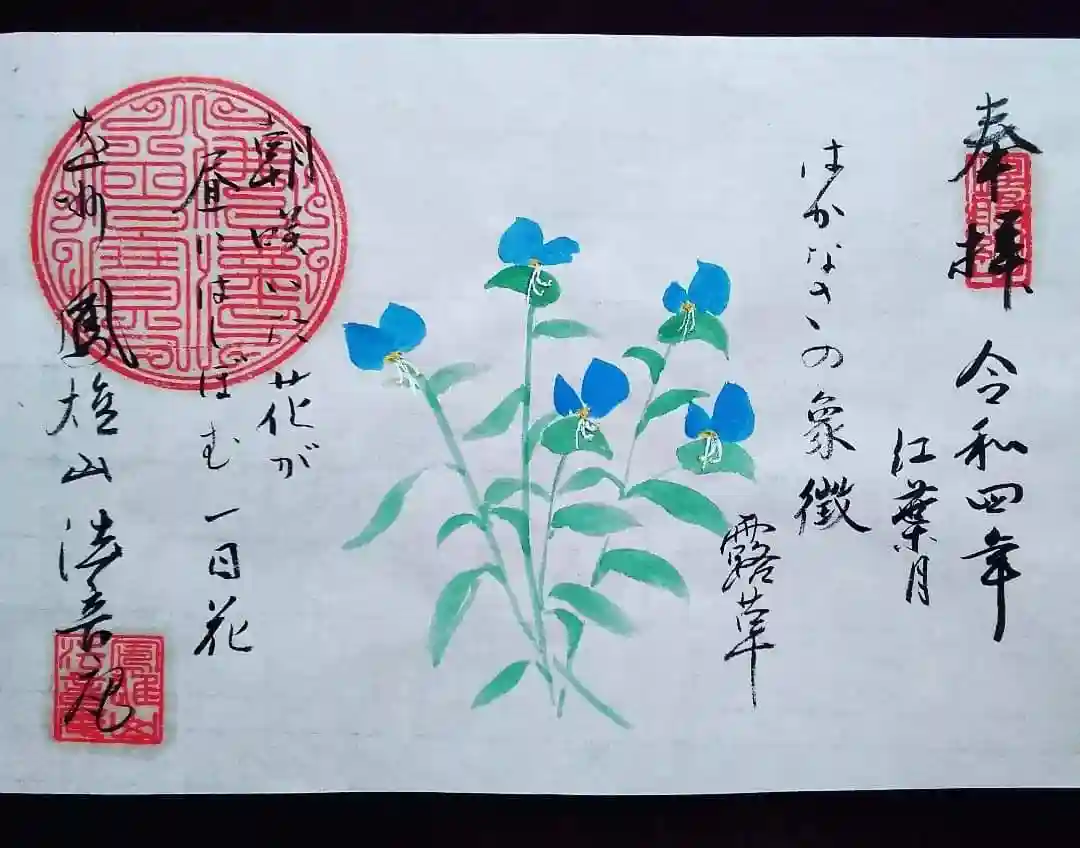 奉拝
令和四年
紅葉月
はかなさの象徴
露草
朝咲いた花が
昼にはしぼむ一日花
遠州 鳳雄山